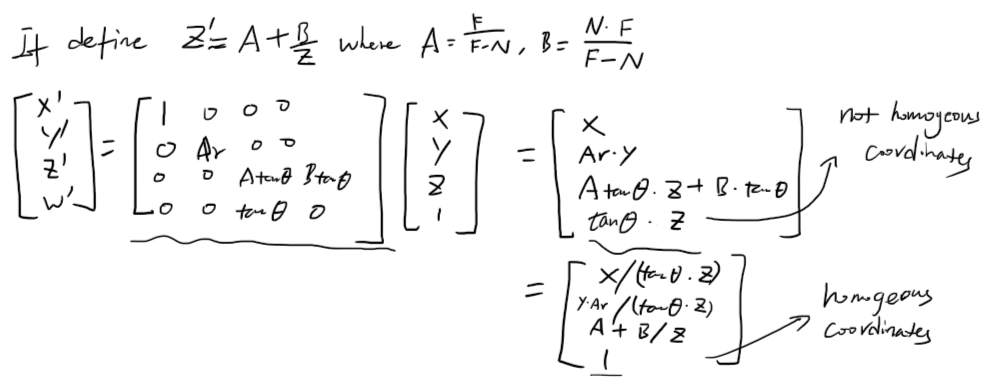 If define Z' = A + B/Z where A = F/F-N, B = N·F/F-N
[X' Y' Z' W'] = [1 0 0 0; 0 Ar 0 0; 0 0 Atanθ Btanθ; 0 0 tanθ 0] [X Y Z 1] = [X; Ar·Y; Atanθ·Z + B·tanθ; tanθ·Z]
not homogeous
coordinates
= [X/(tanθ·Z); Y·Ar/(tanθ·Z); A + B/Z; 1]
homgeous
coordinates